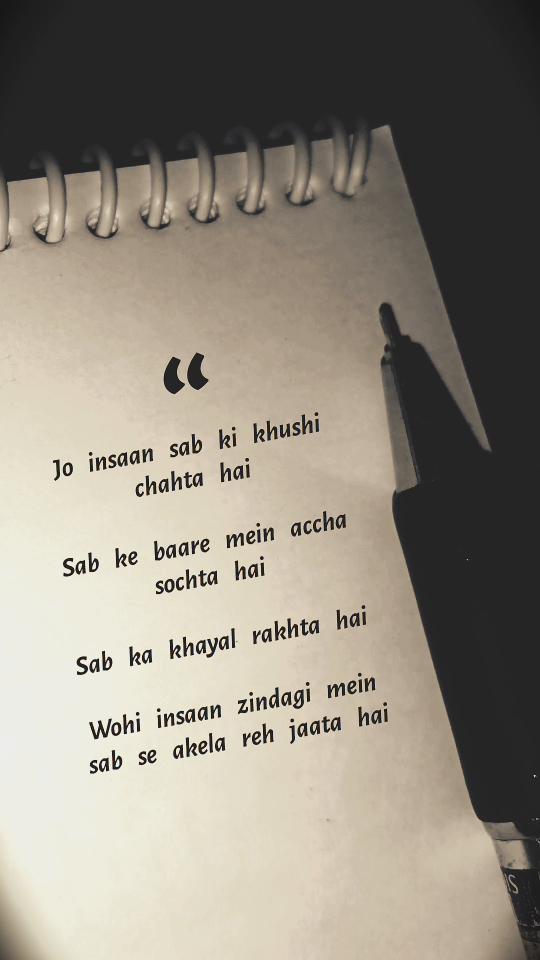 “
Jo insaan sab ki khushi
chahta hai
Sab ke baare mein accha
sochta hai
Sab ka khayal rakhta hai
Wohi insaan zindagi mein
sab se akela reh jaata hai